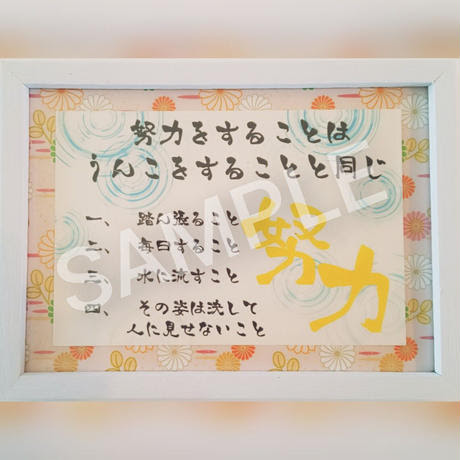 努力をすることは
うんこをすることと同じ
一、 踏ん張ること
二、 毎日すること
三、 水に流すこと
四、 その姿は決して
人に見せないこと
努力
SAMPLE